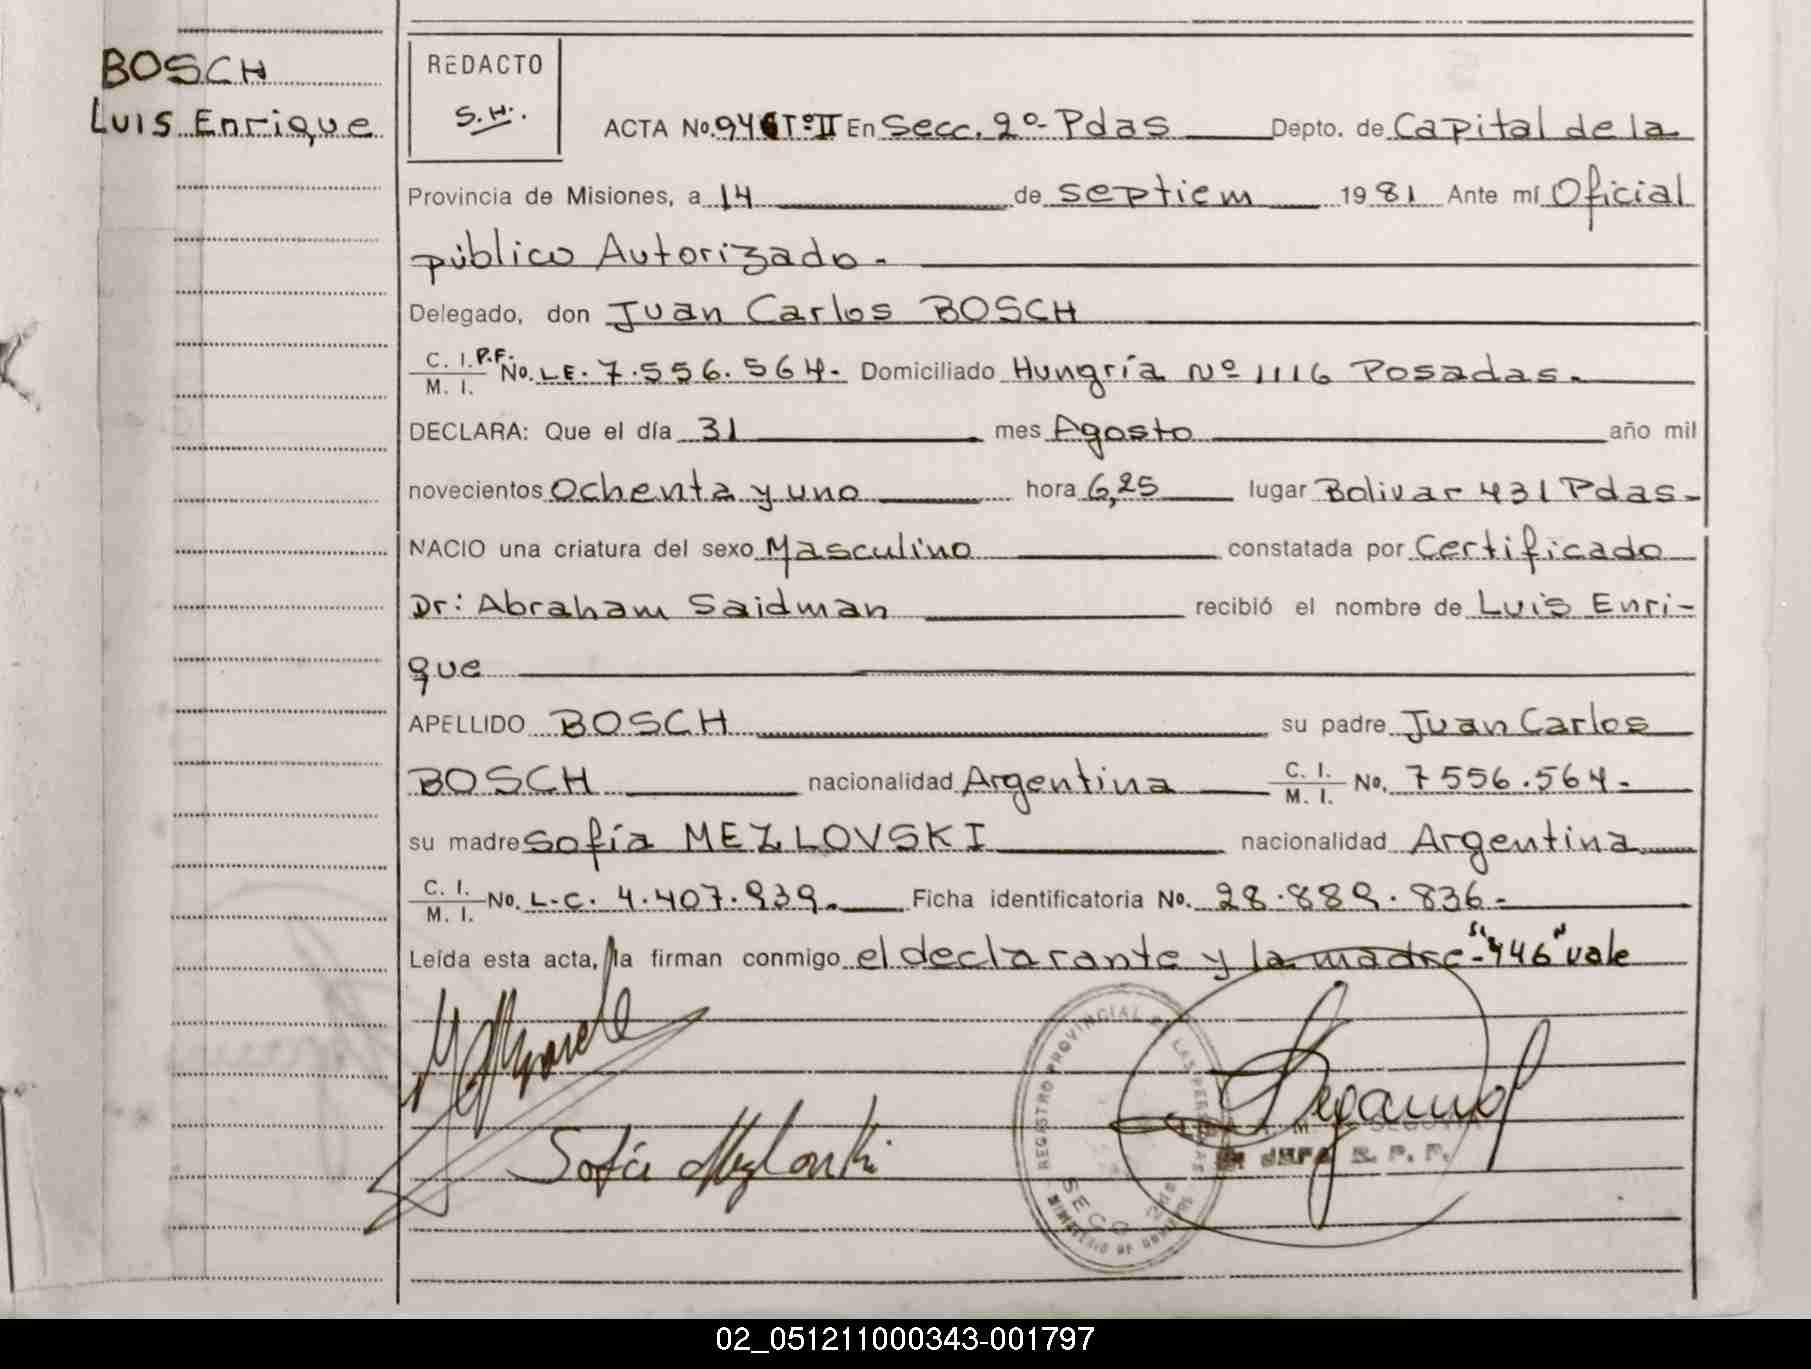 BOSCH
Luis Enrique
REDACTO
S.H.
ACTA No. 946 Tº II En Secc. 2º- Pdas Depto. de Capital de la
Provincia de Misiones, a 14 de septiem 1981 Ante mí Oficial
público Autorizado-
Delegado, don Juan Carlos BOSCH
C. I. P.F. M. I. No. LE. 7.556.564- Domiciliado Hungría Nº 1116 Posadas-
DECLARA: Que el día 31 mes Agosto año mil
novecientos Ochenta y uno hora 6,25 lugar Bolivar 431 Pdas-
NACIO una criatura del sexo Masculino constatada por Certificado
Dr: Abraham Saidman recibió el nombre de Luis Enri-
que
APELLIDO BOSCH su padre Juan Carlos
BOSCH nacionalidad Argentina C. I. M. I. No. 7556.564-
su madre Sofía MEZLOVSKI nacionalidad Argentina
C. I. M. I. No. L-C. 4.407.939- Ficha identificatoria No. 28.889.836-
Leída esta acta, la firman conmigo el declarante y la madre- "446" vale
REGISTRO PROVINCIAL DE LAS PERSONAS
Sofía Mezlovski
SEGOVIA
JEFA S. P. P.
SECC
MINISTERIO DE GOBIERNO
02_051211000343-001797